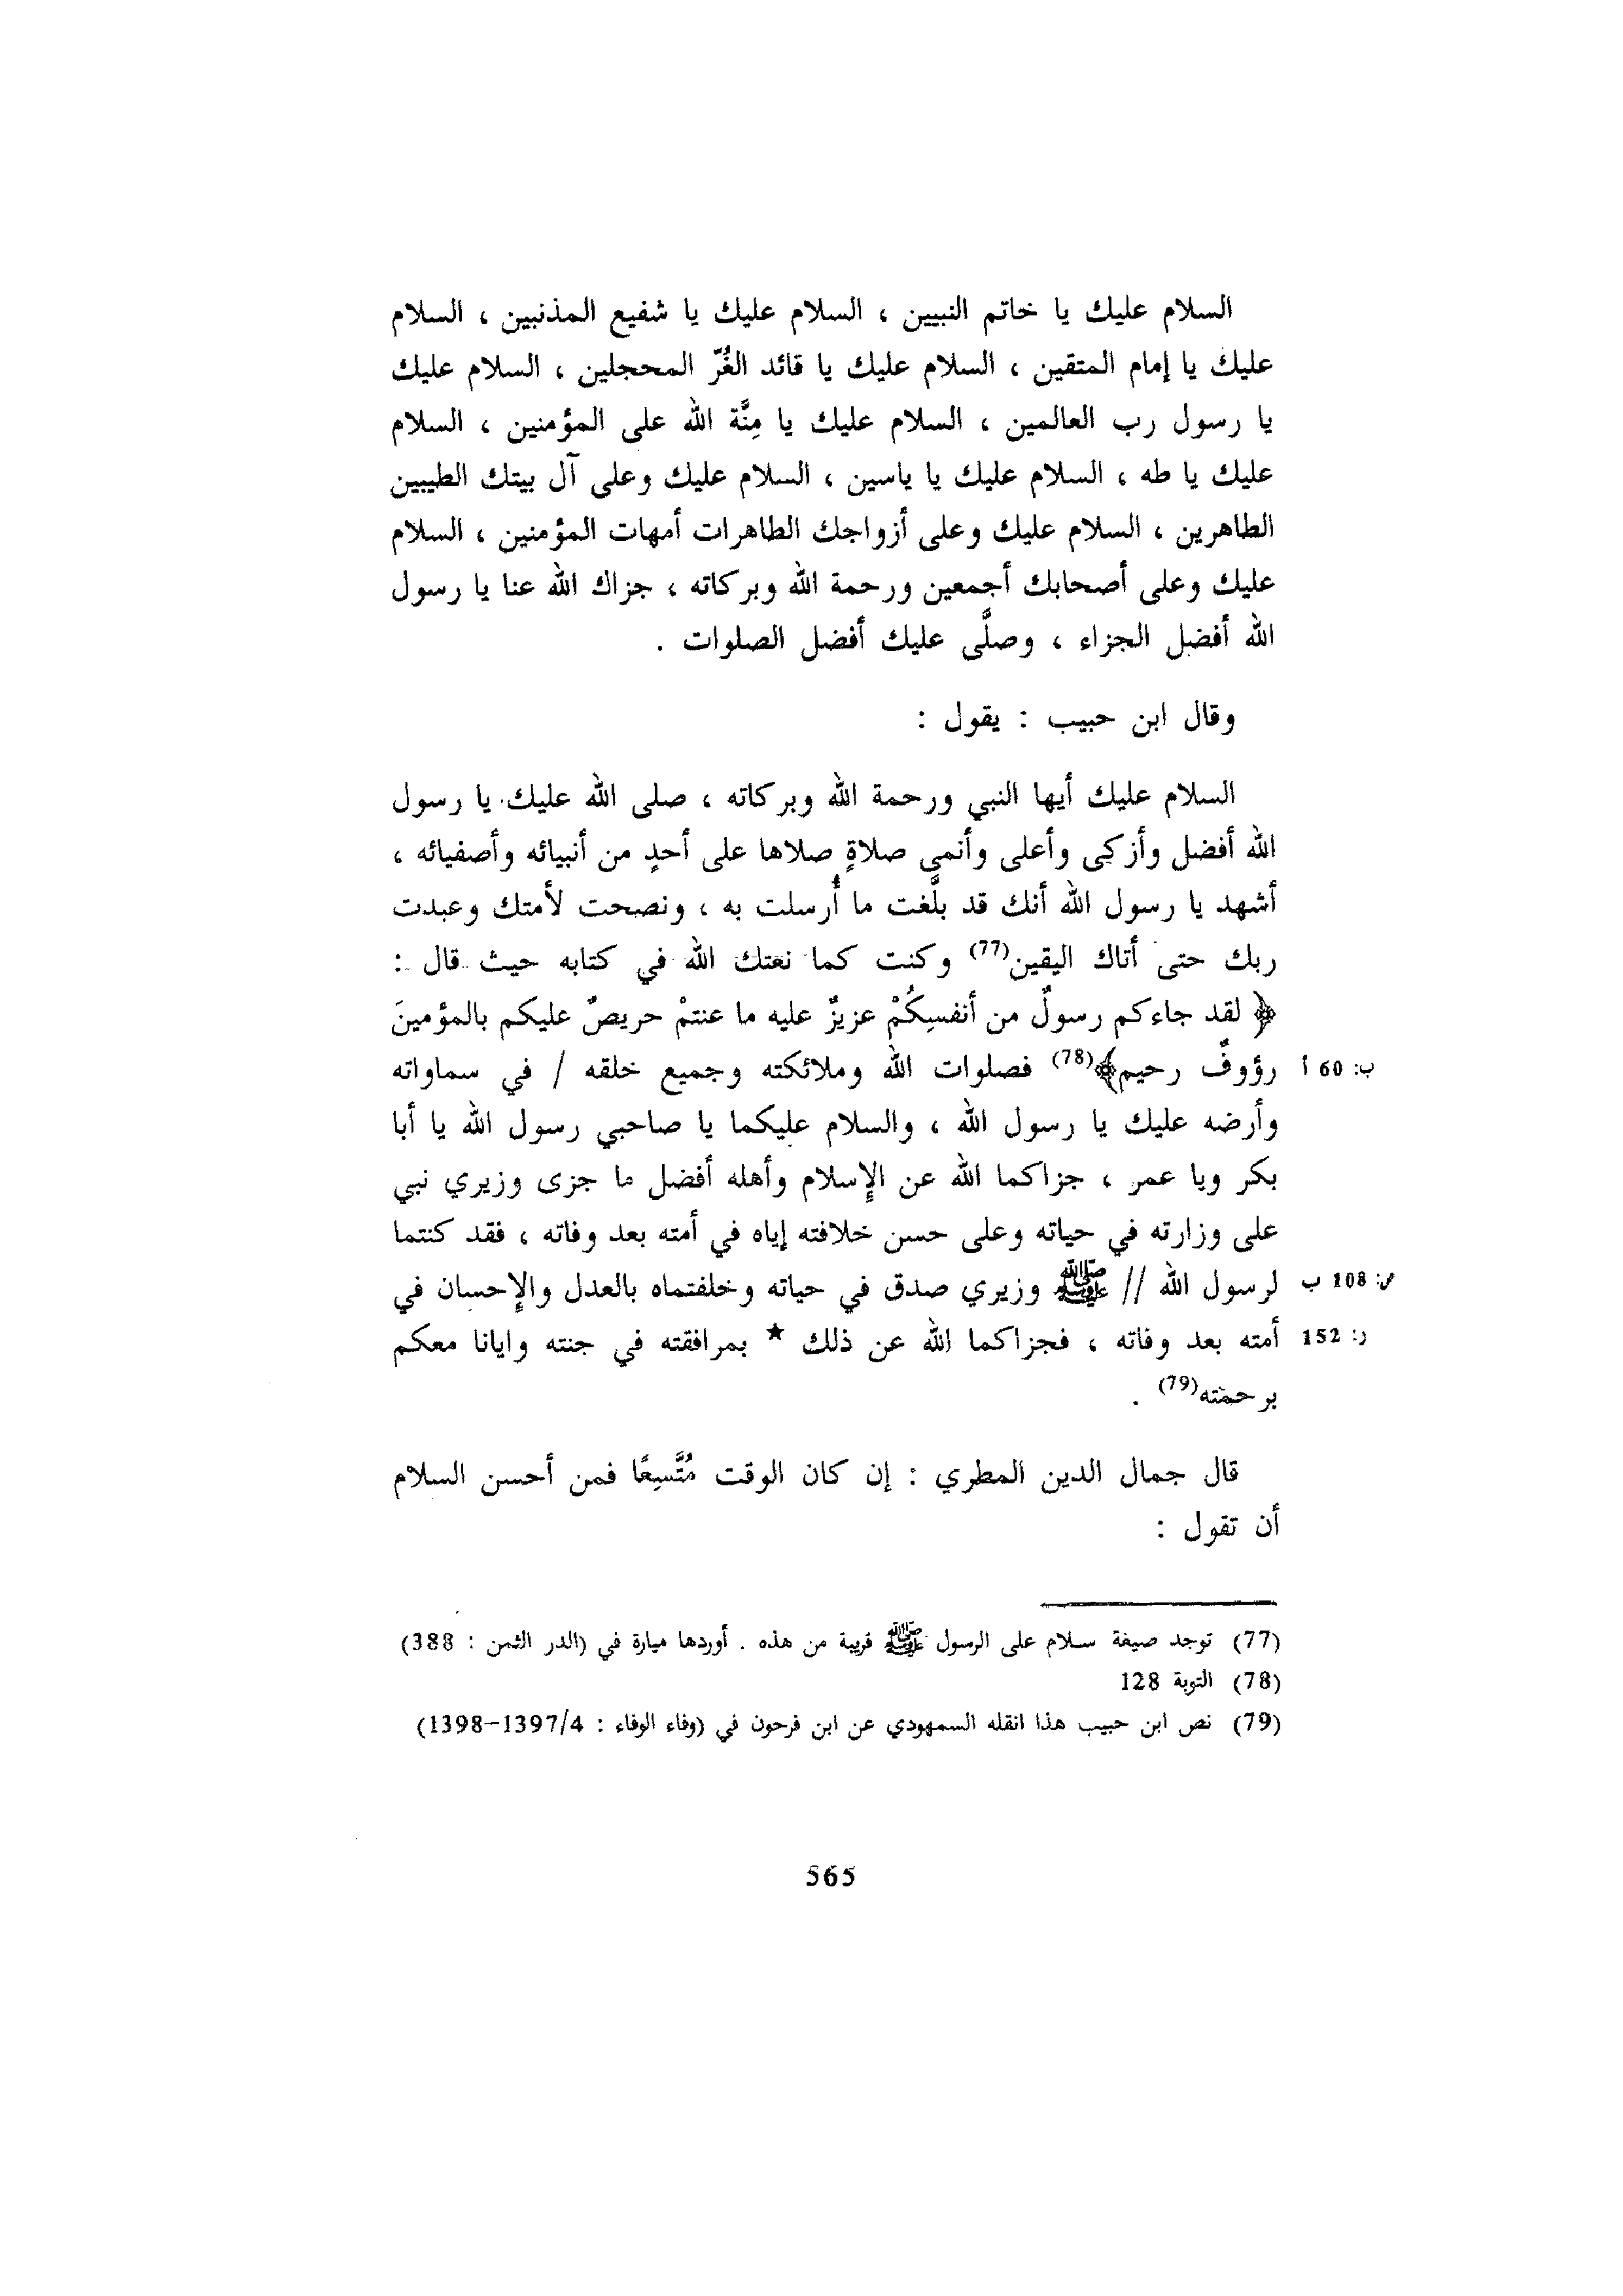 السلام عليك يا خاتم النبيين ، السلام عليك يا شفيع المذنبين ، السلام
عليك يا إمام المتقين ، السلام عليك يا قائد الغُرّ المحجلين ، السلام عليك
يا رسول رب العالمين ، السلام عليك يا مِنَّة الله على المؤمنين ، السلام
عليك يا طه ، السلام عليك يا ياسين ، السلام عليك وعلى آل بيتك الطيبين
الطاهرين ، السلام عليك وعلى أزواجك الطاهرات أمهات المؤمنين ، السلام
عليك وعلى أصحابك أجمعين ورحمة الله وبركاته ، جزاك الله عنا يا رسول
الله أفضل الجزاء ، وصلَّى عليك أفضل الصلوات .
وقال ابن حبيب : يقول :
السلام عليك أيها النبي ورحمة الله وبركاته ، صلى الله عليك يا رسول
الله أفضل وأزكى وأعلى وأنمى صلاةٍ صلاها على أحدٍ من أنبيائه وأصفيائه ،
أشهد يا رسول الله أنك قد بلَّغت ما أُرسلت به ، ونصحت لأمتك وعبدت
ربك حتى أتاك اليقين(77) وكنت كما نعتك الله في كتابه حيث قال :
﴿ لقد جاءكم رسولٌ من أنفسِكُمْ عزيزٌ عليه ما عنتمْ حريصٌ عليكم بالمؤمينَ
رؤوفٌ رحيم﴾(78) فصلوات الله وملائكته وجميع خلقه / في سماواته ب: 60 أ
وأرضه عليك يا رسول الله ، والسلام عليكما يا صاحبي رسول الله يا أبا
بكر ويا عمر ، جزاكما الله عن الإسلام وأهله أفضل ما جزى وزيري نبي
على وزارته في حياته وعلى حسن خلافته إياه في أمته بعد وفاته ، فقد كنتما
لرسول الله // ﷺ وزيري صدق في حياته وخلفتماه بالعدل والإحسان في 108 ب
أمته بعد وفاته ، فجزاكما الله عن ذلك ★ بمرافقته في جنته وايانا معكم ر: 152
برحمته(79) .
قال جمال الدين المطري : إن كان الوقت مُتَّسِعًا فمن أحسن السلام
أن تقول :
(77) توجد صيغة سلام على الرسول ﷺ قريبة من هذه . أوردها ميارة في (الدر الثمن : 388)
(78) التوبة 128
(79) نص ابن حبيب هذا انقله السمهودي عن ابن فرحون في (وفاء الوفاء : 1397/4–1398)
565